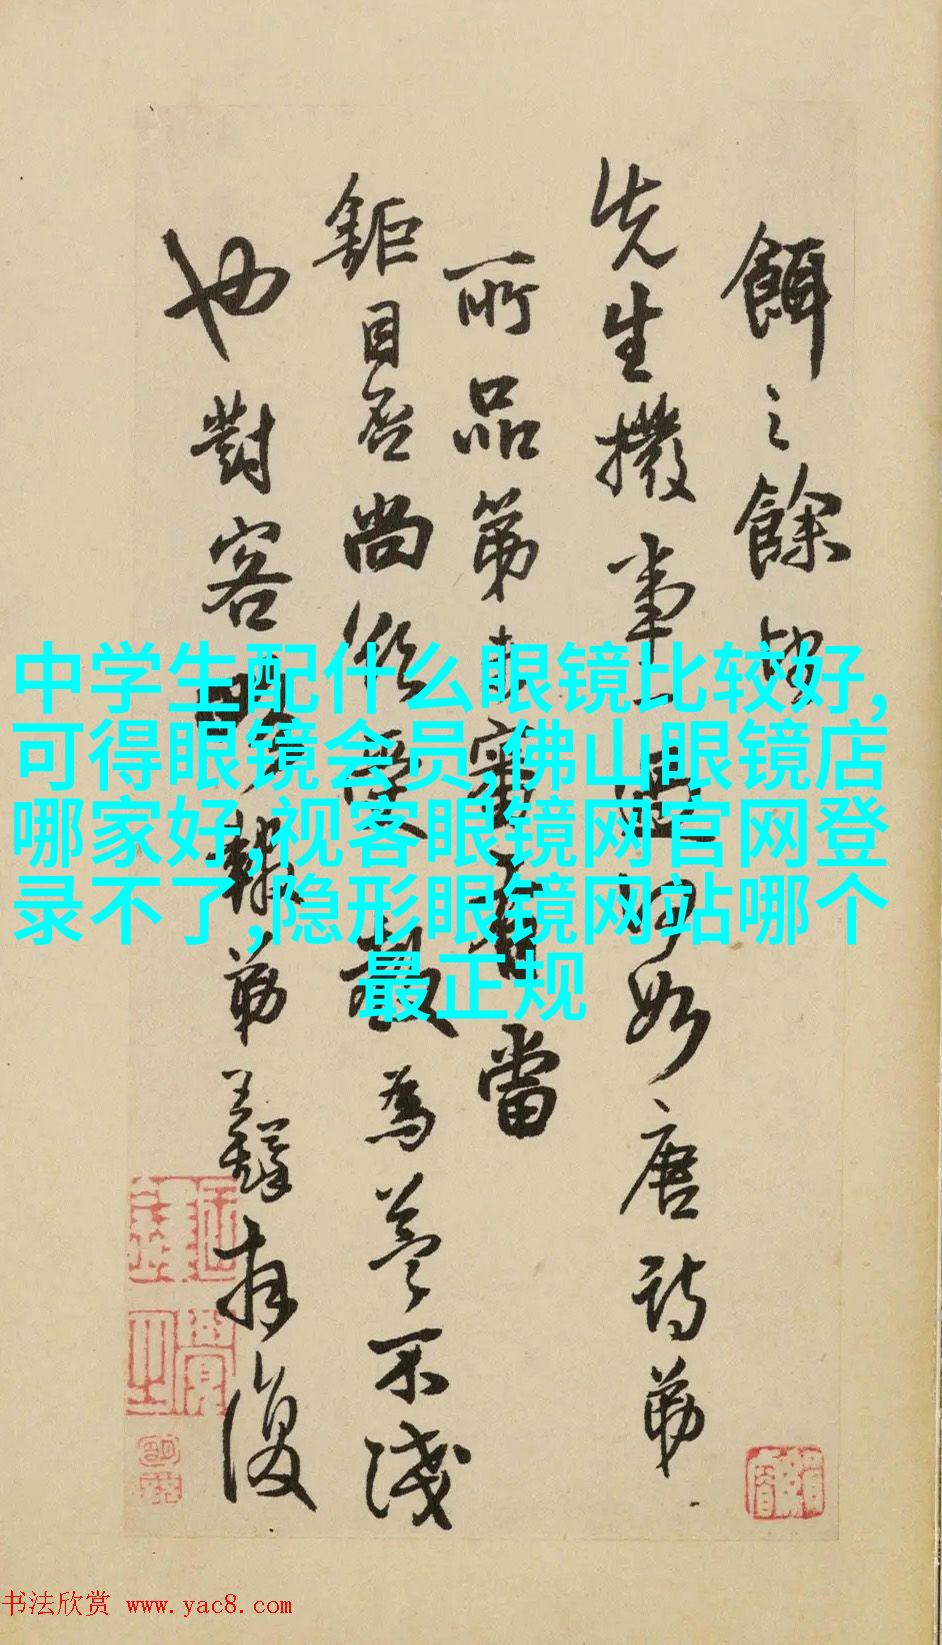 餌之餘
先生撥一何如唐詩弟
所品第未審有當
鉅目否尚欲受教為益不淺
也對客報弟有復
中学生配什么眼镜比较好,
可得眼镜会员,佛山眼镜店
哪家好,视客眼镜网官网登
录不了,隐形眼镜网站哪个
最正规
书法欣赏 www.yac8.com